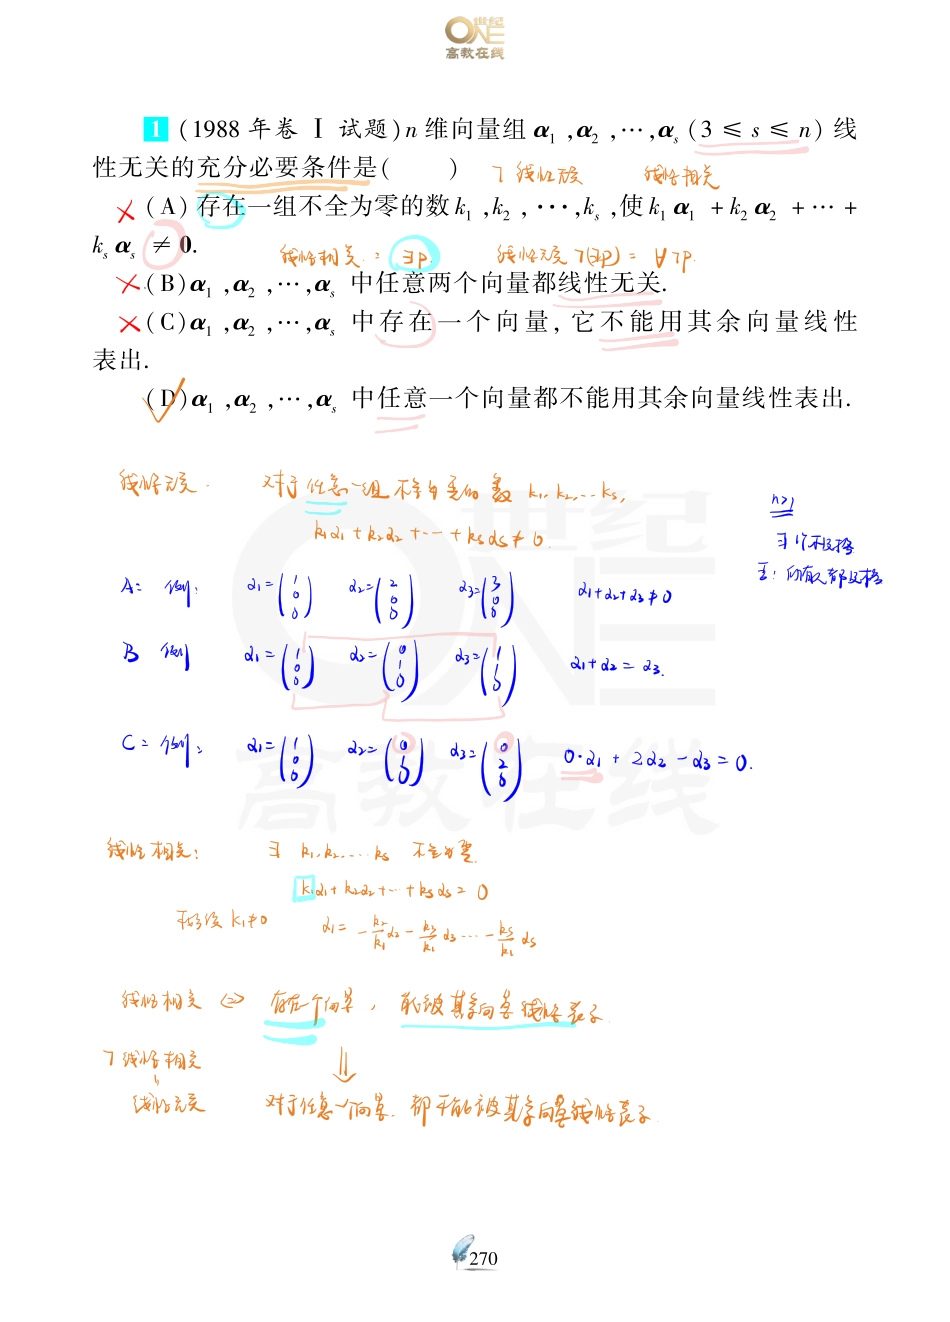 ONE 世纪
高教在线
1 (1988 年卷 Ⅰ 试题) n 维向量组 α₁,α₂,⋯,αₛ (3 ≤ s ≤ n) 线
性无关的充分必要条件是( ) ㄱ 线性无关 线性相关
(A) 存在一组不全为零的数 k₁,k₂,⋯,kₛ,使 k₁α₁ + k₂α₂ + ⋯ +
kₛαₛ ≠ 0.
线性相关: ∃P. 线性无关 ㄱ(∃P) = ∀ㄱP.
(B) α₁,α₂,⋯,αₛ 中任意两个向量都线性无关.
(C) α₁,α₂,⋯,αₛ 中存在一个向量, 它不能用其余向量线性
表出.
(D) α₁,α₂,⋯,αₛ 中任意一个向量都不能用其余向量线性表出.
线性无关. 对于任意一组不全为零的数 k₁,k₂,⋯kₛ,
k₁α₁+k₂α₂+⋯+kₛαₛ≠0.
∃ 1个不及格
所有人都及格
A: 例: α₁=(1 0 0) α₂=(2 0 0) α₃=(3 0 0) α₁+α₂+α₃≠0
B 例 α₁=(1 0 0) α₂=(0 1 0) α₃=(1 1 0) α₁+α₂=α₃.
C: 例: α₁=(1 0 0) α₂=(0 1 0) α₃=(0 2 0) 0·α₁+2α₂-α₃=0.
世纪
ONE
高教在线
线性相关: ∃ k₁,k₂,⋯kₛ 不全为零.
k₁α₁+k₂α₂+⋯+kₛαₛ=0
不妨设 k₁≠0 α₁=-k₂/k₁α₂-k₃/k₁α₃⋯-kₛ/k₁αₛ
线性相关 ⇔ 存在一个向量, 能被其余向量线性表示.
ㄱ 线性相关 ⇓
线性无关 对于任意一个向量. 都不能被其余向量线性表示.
270